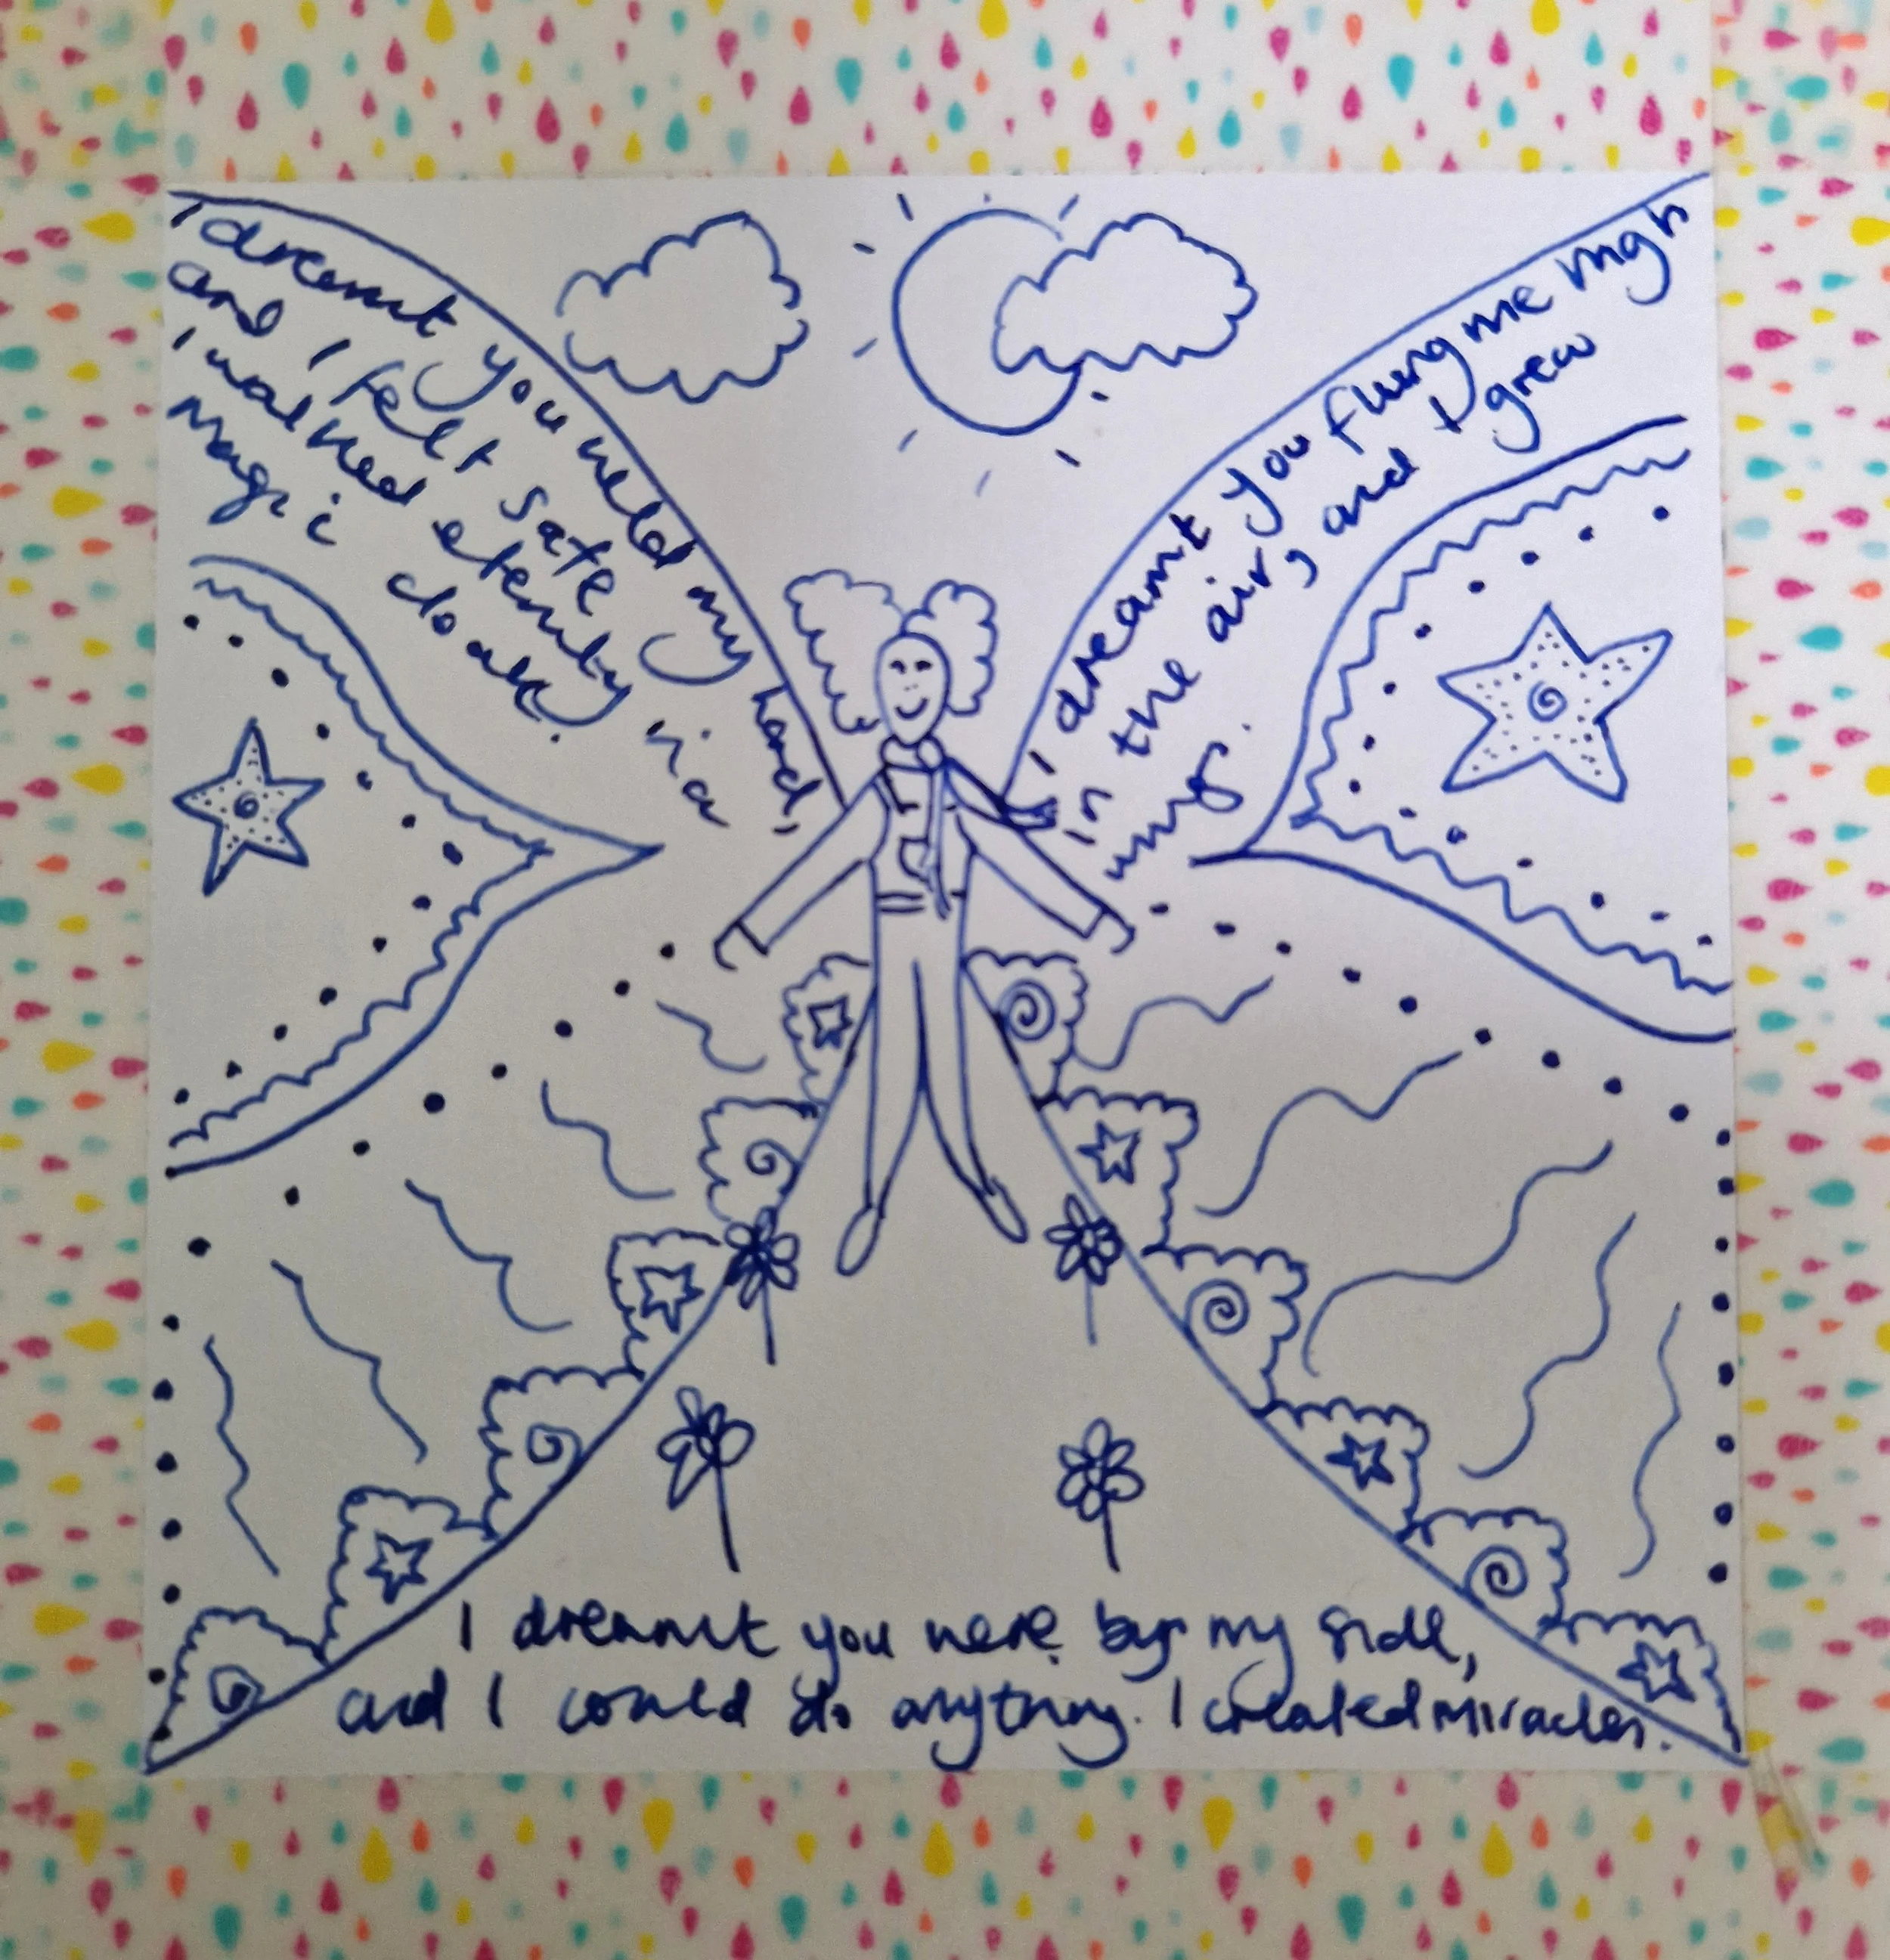 I dreamt you held my hand,
and I felt safe
I walked eternity in a
Magic cloak.
I dreamt you flung me high
in the air, and I grew
wings.
I dreamt you were by my side,
and I could do anything. I created miracles.